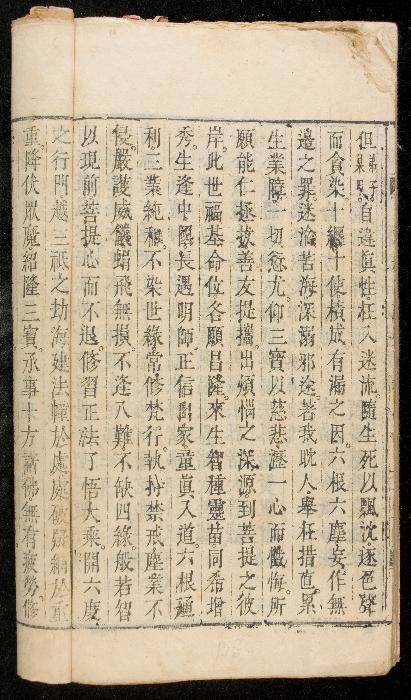 但弟子某甲自違真性枉入迷流隨生死以飄沈逐色聲
而貪染十纏十使積成有漏之因六根六塵妄作無
邊之罪迷淪苦海深溺邪途著我耽人舉枉措直累
生業障一切愆尤仰三寶以慈悲瀝一心而懺悔所
願能仁拯拔善友提攜出煩惱之深源到菩提之彼
岸此世福基命位各願昌隆來生智種靈苗同希增
秀生逢中國長遇明師正信出家童真入道六根通
利三業純和不染世緣常修梵行執持禁戒塵業不
侵嚴護威儀蜎飛無損不逢八難不缺四緣般若智
以現前菩提心而不退修習正法了悟大乘開六度
之行門越三祇之劫海建法幢於處處破疑網於重
重降伏眾魔紹隆三寶承事十方諸佛無有疲勞修